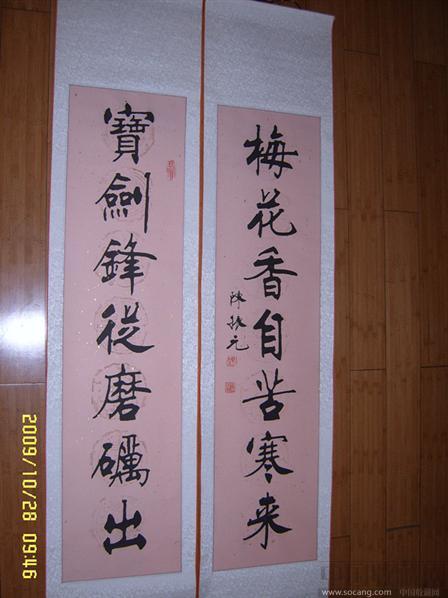 寶劍鋒從磨礪出
梅花香自苦寒来
陳振元
2009/10/28 09:46
www.socang.com